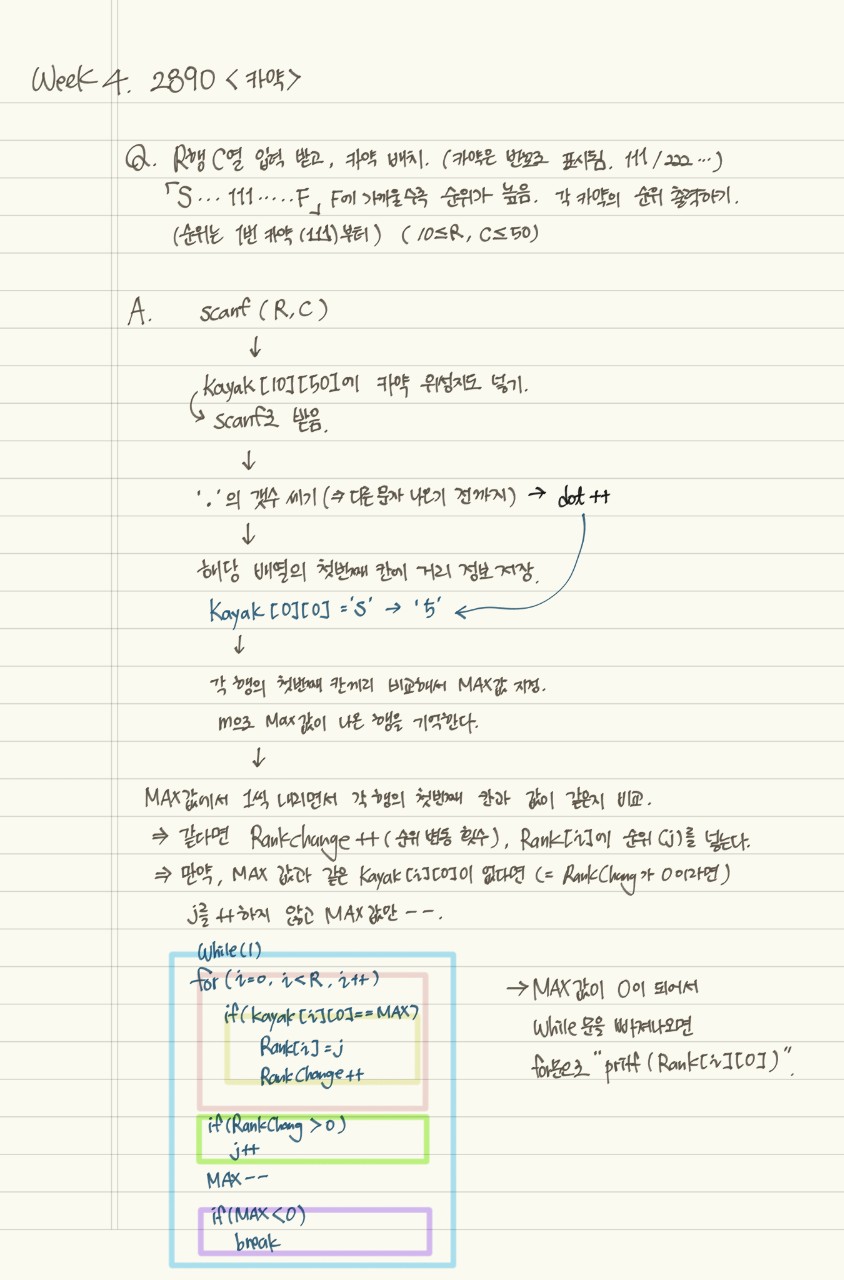 Week 4. 2890 <카약>
Q. R행 C열 입력 받고, 카약 배치. (카약은 번호로 표시됨. 111/222…)
「S… 111 …..F」 F에 가까울수록 순위가 높음. 각 카약의 순위 출력하기.
(순위는 1번 카약 (111)부터) (10≤R, C≤50)
A. scanf (R,C)
↓
Kayak [10][50]에 카약 위성지도 넣기.
scanf로 받음.
↓
'.'의 갯수 세기 (⇒ 다른 문자 나오기 전까지) → dot ++
↓
해당 배열의 첫번째 칸에 거리 정보 저장.
Kayak [0][0] ='S' → '5'
↓
각 행의 첫번째 칸끼리 비교해서 MAX값 지정.
m으로 Max값이 나온 행을 기억한다.
↓
MAX값에서 1씩 내리면서 각 행의 첫번째 칸과 값이 같은지 비교.
⇒ 같다면 Rankchange ++ (순위 변동 횟수), Rank[i]에 순위 (j)를 넣는다.
⇒ 만약, MAX 값과 같은 Kayak [i][0]이 없다면 (= RankChang가 0이라면)
j를 ++하지 않고 MAX값만 --.
While(1)
for (i=0, i<R, i++)
if(Kayak[i][0]==MAX)
Rank[i]=j
RankChange++
if(RankChang >0)
j++
MAX--
if(MAX<0)
break
→ MAX값이 0이 되어서
While문을 빠져나오면
for문으로 "pritf (Rank[i][0])".